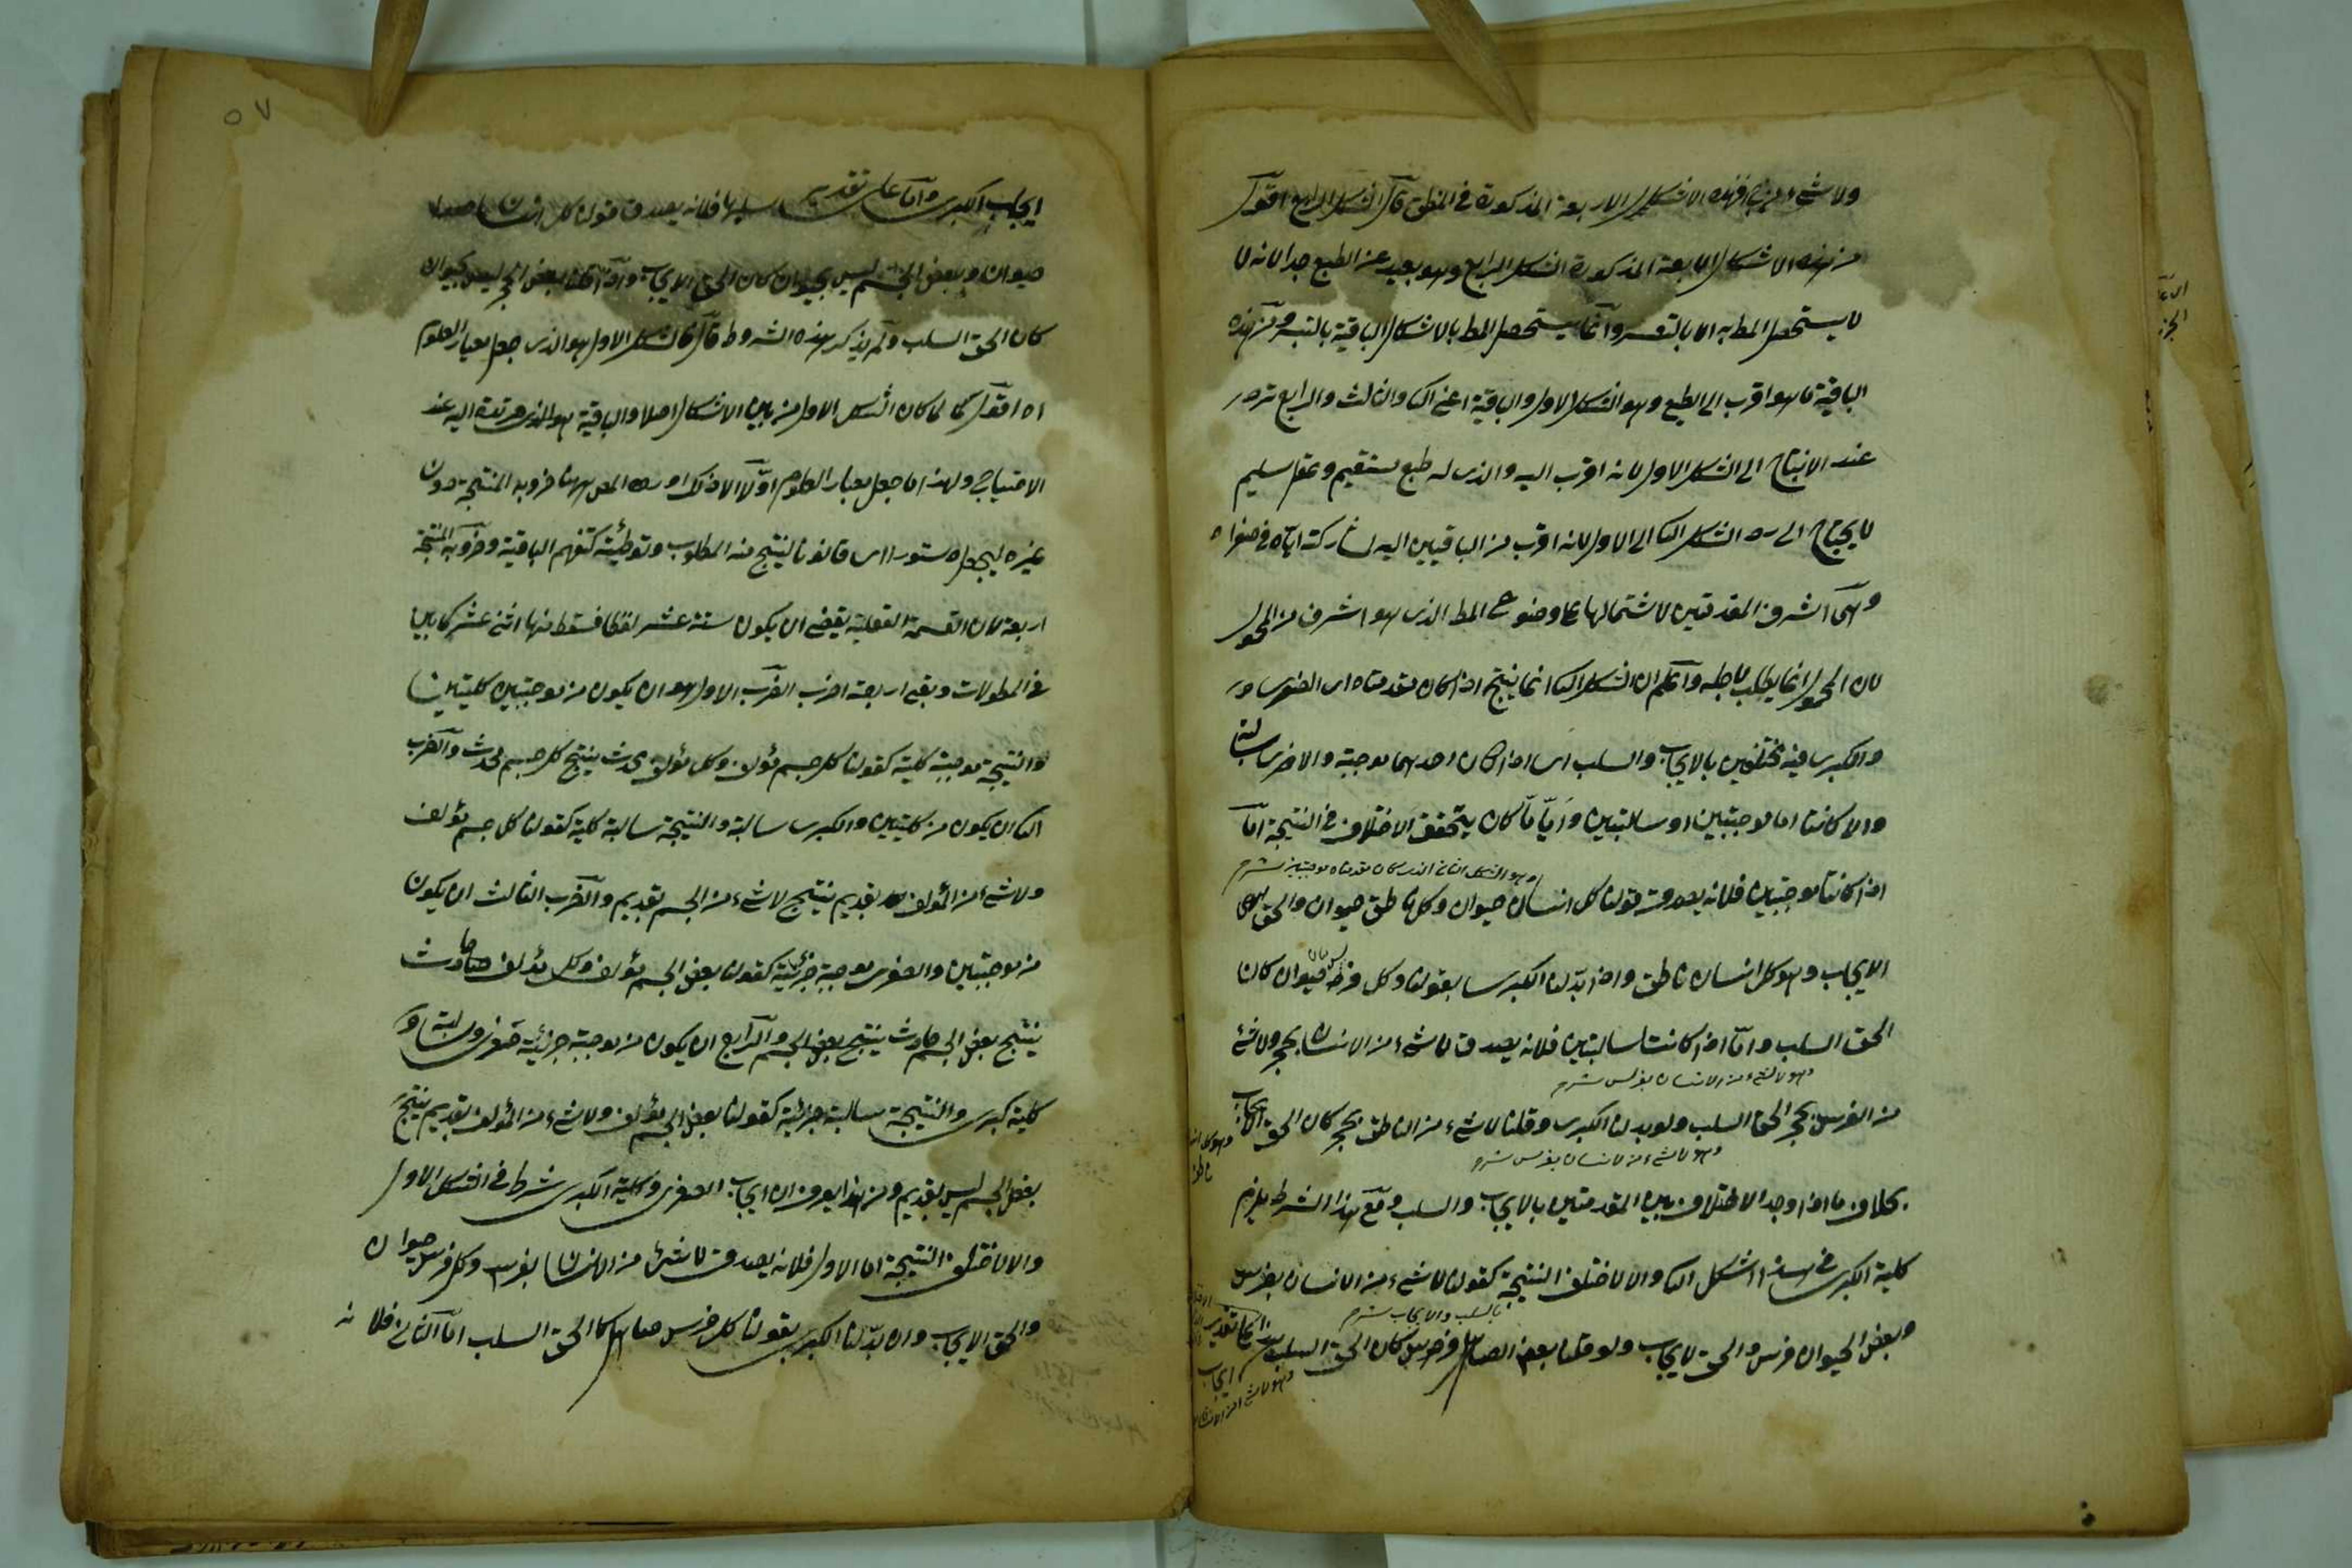 فهذه الاشكال الاربعة المذكورة في المنطق قال الشكل الرابع اقول
من هذه الاشكال الاربعة المذكورة الشكل الرابع وهو بعيد عن الطبع جدا لانه لا
لا يستحصل المط به الا بالتعسر وانما يستحصل المط بالاشكال الباقية
الباقية ما هو اقرب الى الطبع وهو الشكل الاول والباقية اعني الثا والثالث والرابع ترد
عند الانتاج الى الشكل الاول لانه اقرب اليه والذى له طبع مستقيم وعقل سليم
لا يحتاج الى رد الشكل الثا الى الاول لانه اقرب من الباقيين اليه لمشاركته اياه في صغراه
وهى اشرف المقدمتين لاشتمالها على موضوع المط الذى هو اشرف من المحمول
لان المحمول انما يطلب لاجله واعلم ان الشكل الثا انما ينتج اذا كان مقدمتاه اى الصغرى
والكبرى فيه مختلفين بالايجاب والسلب اى اذا كان احديهما موجبة والاخرى سالبة
والا كانتا اما موجبتين او سالبتين وايا ما كان يتحقق الاختلاف في النتيجة اما
وهو الشكل الثانى الذى كان مقدمتاه موجبتين شرح
اذا كانتا موجبتين فلانه يصدق قولنا كل انسان حيوان وكل ناطق حيوان والحق
الايجاب وهو كل انسان ناطق واذا بدلنا الكبرى بقولنا وكل فرس حيوان كان
الحق السلب واما اذا كانتا سالبتين فلانه يصدق لا شىء من الانسان بحجر ولا شئ
وهو لا شىء من الانسان بفرس شرح
من الفرس بحجر الحق السلب ولو بدلنا الكبرى وقلنا لا شىء من الناطق بحجر كان الحق الايجاب
وهو لا شىء من الانسان بفرس شرح
بخلاف ما اذا وجد الاختلاف بين المقدمتين بالايجاب والسلب ومع هذا الشرط يلزم
كلية الكبرى في هذا الشكل الثا والا لاختلف النتيجة كقولنا لا شىء من الانسان بفرس
بالسلب والايجاب شرح
وبعض الحيوان فرس والحق الايجاب ولو قلنا بعض الصاهل فرس كان الحق السلب
ايجاب الكبرى واما على تقدير سلبها فلانه يصدق قولنا كل انسان
حيوان وبعض الجسم ليس بحيوان كان الحق الايجاب واذا قلنا بعض الحجر ليس بحيوان
كان الحق السلب ولم يذكر هذه الشروط قال والشكل الاول هو الذى جعل معيار العلوم
اه اقول لما كان الشكل الاول من بين الاشكال اصلا والباقية اليه عند
الاحتياج ولهذا ما جعل معيار العلوم اورد المص ههنا ضروبه المنتجة دون
غيره ليجعل دستورا اى قانونا لينتج منه المطلوب وتوطئة كتفهم الباقية وضروبه المنتجة
اربعة لان القسمة العقلية يقتضى ان يكون ستة عشر لفظا فسقط منها اثنى عشر كما بينا
في المطولات وبقى اربعة اضرب الضرب الاول هو ان يكون من موجبتين كليتين
والنتيجة موجبة كلية كقولنا كل جسم مؤلف وكل مؤلف محدث ينتج كل جسم محدث والضرب
الثا ان يكون من كليتين والكبرى سالبة والنتيجة سالبة كلية كقولنا كل جسم مؤلف
ولا شىء من المؤلف بقديم ينتج لا شىء من الجسم بقديم والضرب الثالث ان يكون
من موجبتين والصغرى موجبة جزئية كقولنا بعض الجسم مؤلف وكل مؤلف حادث
ينتج بعض الجسم حادث ينتج بعض الجسم والرابع ان يكون من موجبة جزئية صغرى وسالبة
كلية كبرى والنتيجة سالبة جزئية كقولنا بعض الجسم مؤلف ولا شىء من المؤلف بقديم ينتج
بعض الجسم ليس بقديم ومن هذا يعرف ان ايجاب الصغرى وكلية الكبرى شرط في الشكل الاول
والا لاختلف النتيجة اما الاول فلانه يصدق لا شىء من الانسان بفرس وكل فرس حيوان
والحق الايجاب وان بدلنا الكبرى بقولنا كل فرس صاهل كان الحق السلب اما الثانى فلانه
٥٧